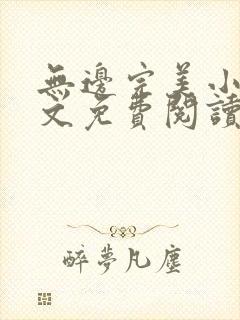 無邊完美小
文免費閱讀
醉夢凡塵